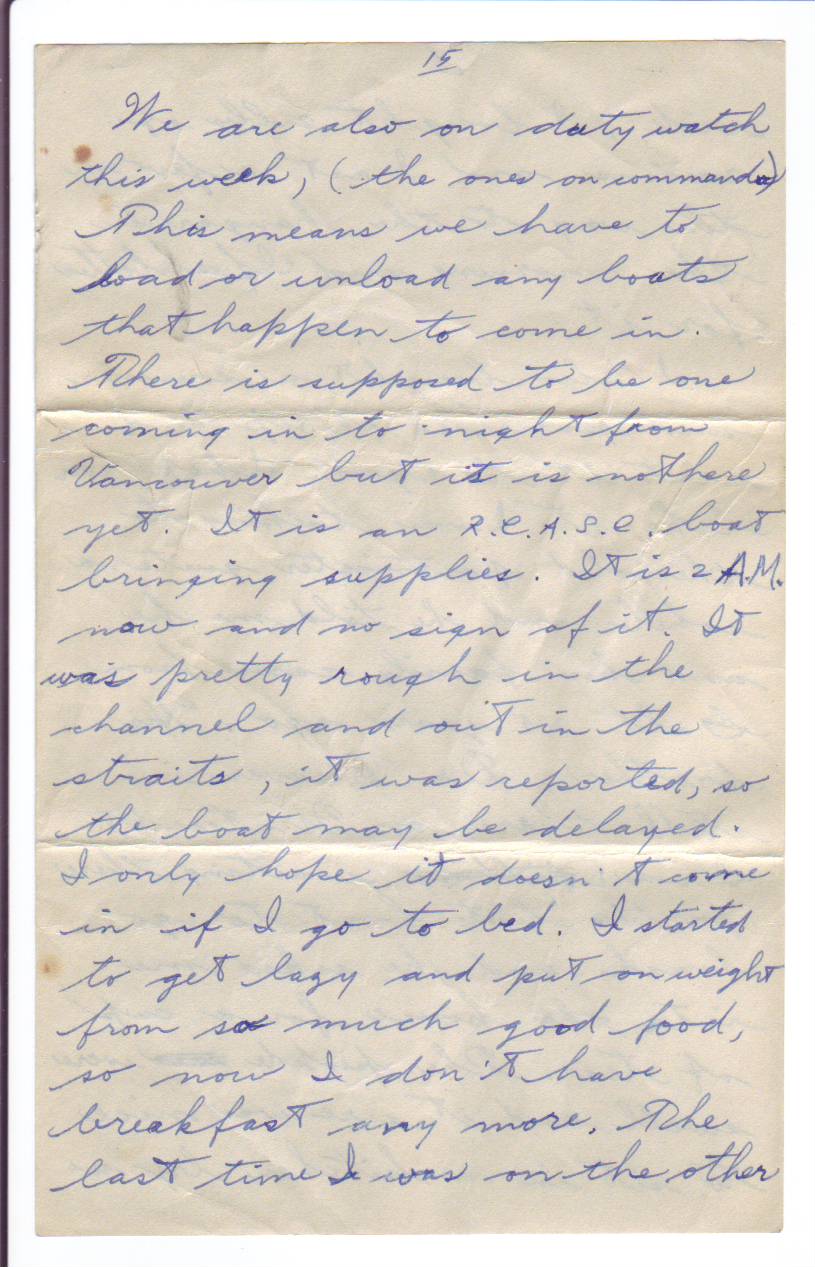 15
We are also on duty watch
this week, (the ones on commando)
This means we have to
load or unload any boats
that happen to come in.
There is supposed to be one
coming in to night from
Vancouver but it is not here
yet. It is an R.C.A.S.C. boat
bringing supplies. It is 2 A.M.
now and no sign of it. It
was pretty rough in the
channel and out in the
straits, it was reported, so
the boat may be delayed.
I only hope it doesn't come
in if I go to bed. I started
to get lazy and put on weight
from so much good food,
so now I don't have
breakfast any more. The
last time I was on the other